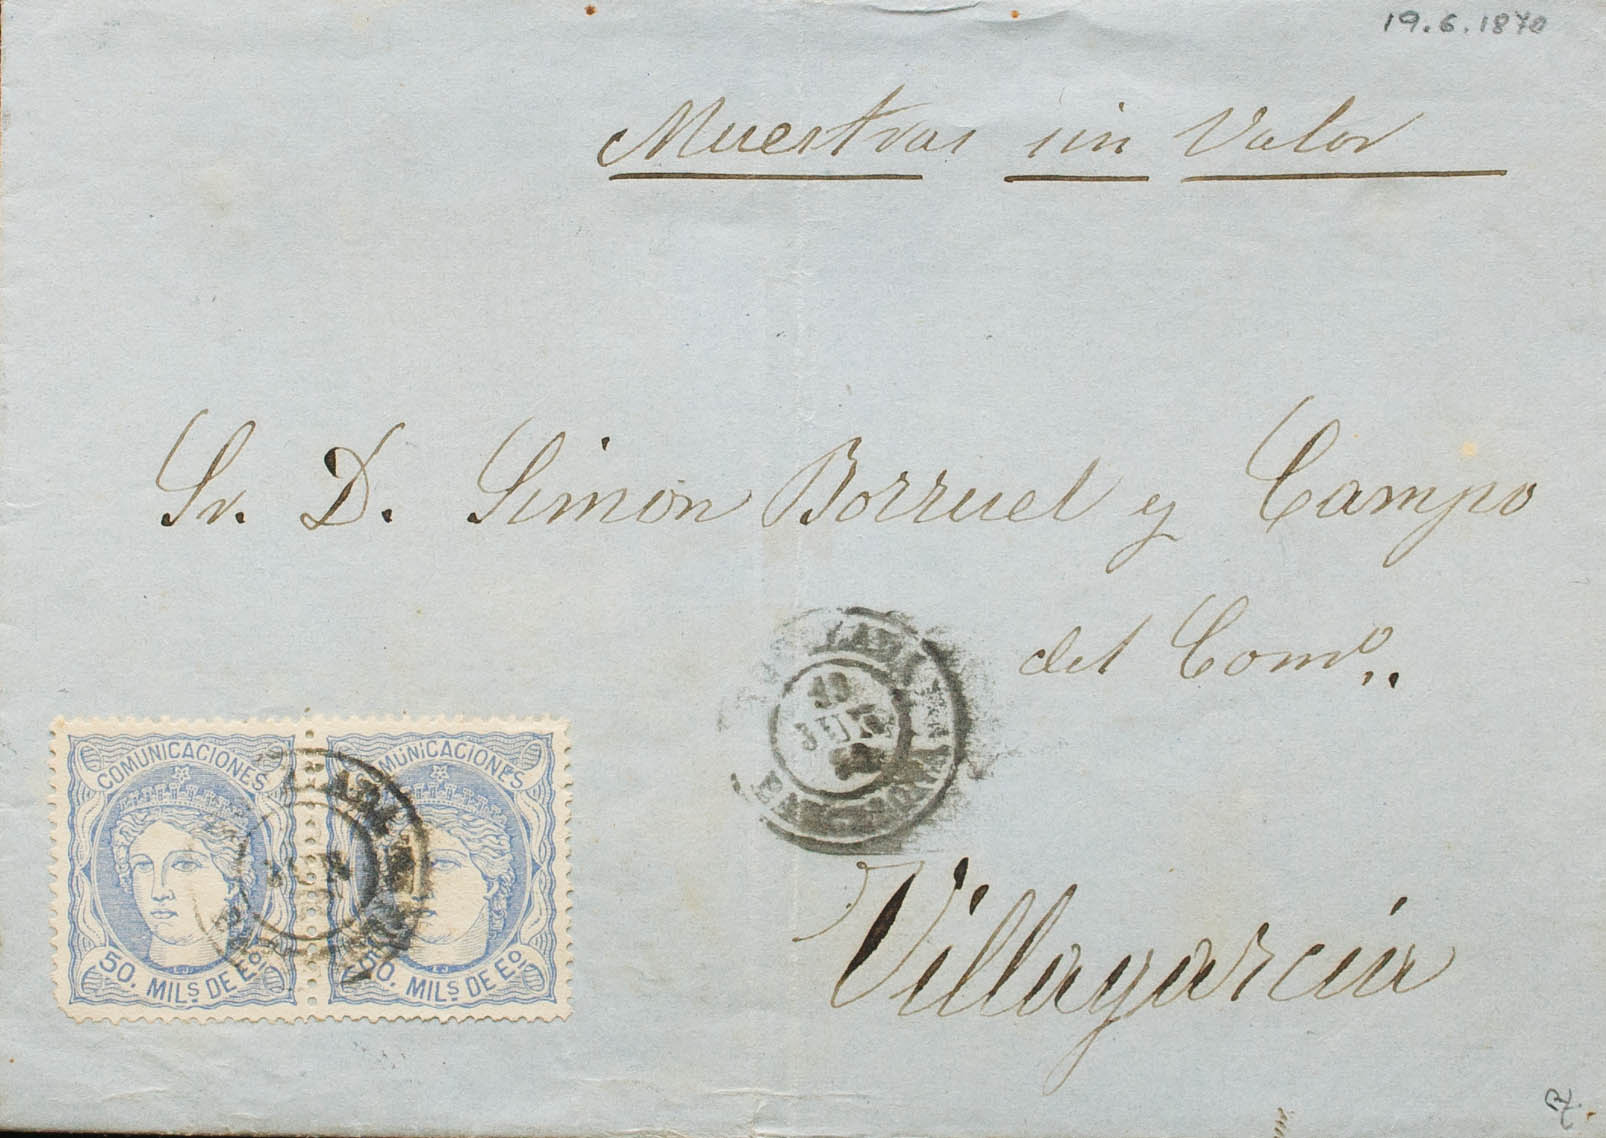 19.6.1870
Muestras sin Valor
Sr. D. Simon Borruel y Campo
del Como..
COMUNICACIONES
50. MILs DE Eo.
COMUNICACIONES
50. MILs DE Eo.
Villagarcia